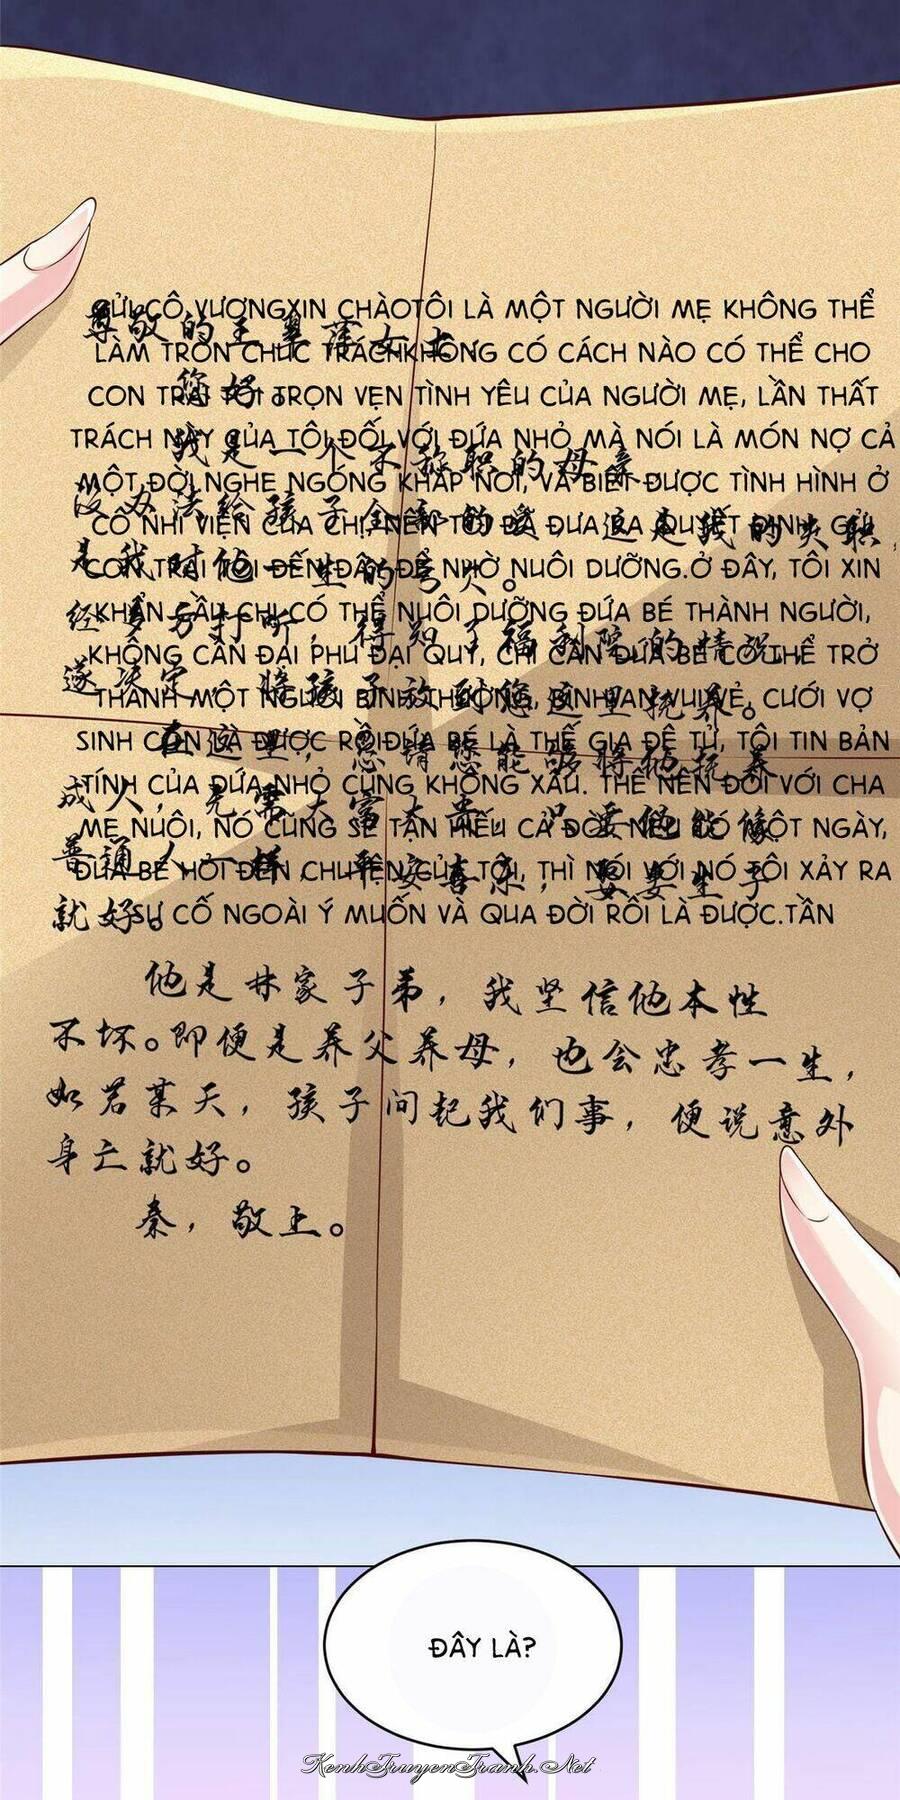 GỬI CÔ VƯƠNGXIN CHÀOTÔI LÀ MỘT NGƯỜI MẸ KHÔNG THỂ
LÀM TRÒN CHỨC TRÁCHKHÔNG CÓ CÁCH NÀO CÓ THỂ CHO
CON TRAI TÔI TRỌN VẸN TÌNH YÊU CỦA NGƯỜI MẸ, LẦN THẤT
TRÁCH NÀY CỦA TÔI ĐỐI VỚI ĐỨA NHỎ MÀ NÓI LÀ MÓN NỢ CẢ
MỘT ĐỜI.NGHE NGÓNG KHẮP NƠI, VÀ BIẾT ĐƯỢC TÌNH HÌNH Ở
CÔ NHI VIỆN CỦA CHỊ, NÊN TÔI ĐÃ ĐƯA RA QUYẾT ĐỊNH, GỬI
CON TRAI TÔI ĐẾN ĐÂY ĐỂ NHỜ NUÔI DƯỠNG.Ở ĐÂY, TÔI XIN
KHẨN CẦU CHỊ CÓ THỂ NUÔI DƯỠNG ĐỨA BÉ THÀNH NGƯỜI,
KHÔNG CẦN ĐẠI PHÚ ĐẠI QUÝ, CHỈ CẦN ĐỨA BÉ CÓ THỂ TRỞ
THÀNH MỘT NGƯỜI BÌNH THƯỜNG, BÌNH AN VUI VẺ, CƯỚI VỢ
SINH CON LÀ ĐƯỢC RỒI.ĐỨA BÉ LÀ THẾ GIA ĐỆ TỬ, TÔI TIN BẢN
TÍNH CỦA ĐỨA NHỎ CŨNG KHÔNG XẤU. THẾ NÊN ĐỐI VỚI CHA
MẸ NUÔI, NÓ CŨNG SẼ TẬN HIẾU CẢ ĐỜI. NẾU CÓ MỘT NGÀY,
ĐỨA BÉ HỎI ĐẾN CHUYỆN CỦA TÔI, THÌ NÓI VỚI NÓ TÔI XẢY RA
SỰ CỐ NGOÀI Ý MUỐN VÀ QUA ĐỜI RỒI LÀ ĐƯỢC.TẦN
您好。
我是一个不称职的母亲
就好。
他是林家子弟，我坚信他本性
不坏。即便是养父养母，也会忠孝一生，
如若某天，孩子问起我们事，便说意外
身亡就好。
秦，敬上。
ĐÂY LÀ?
KenhTruyenTranh.Net